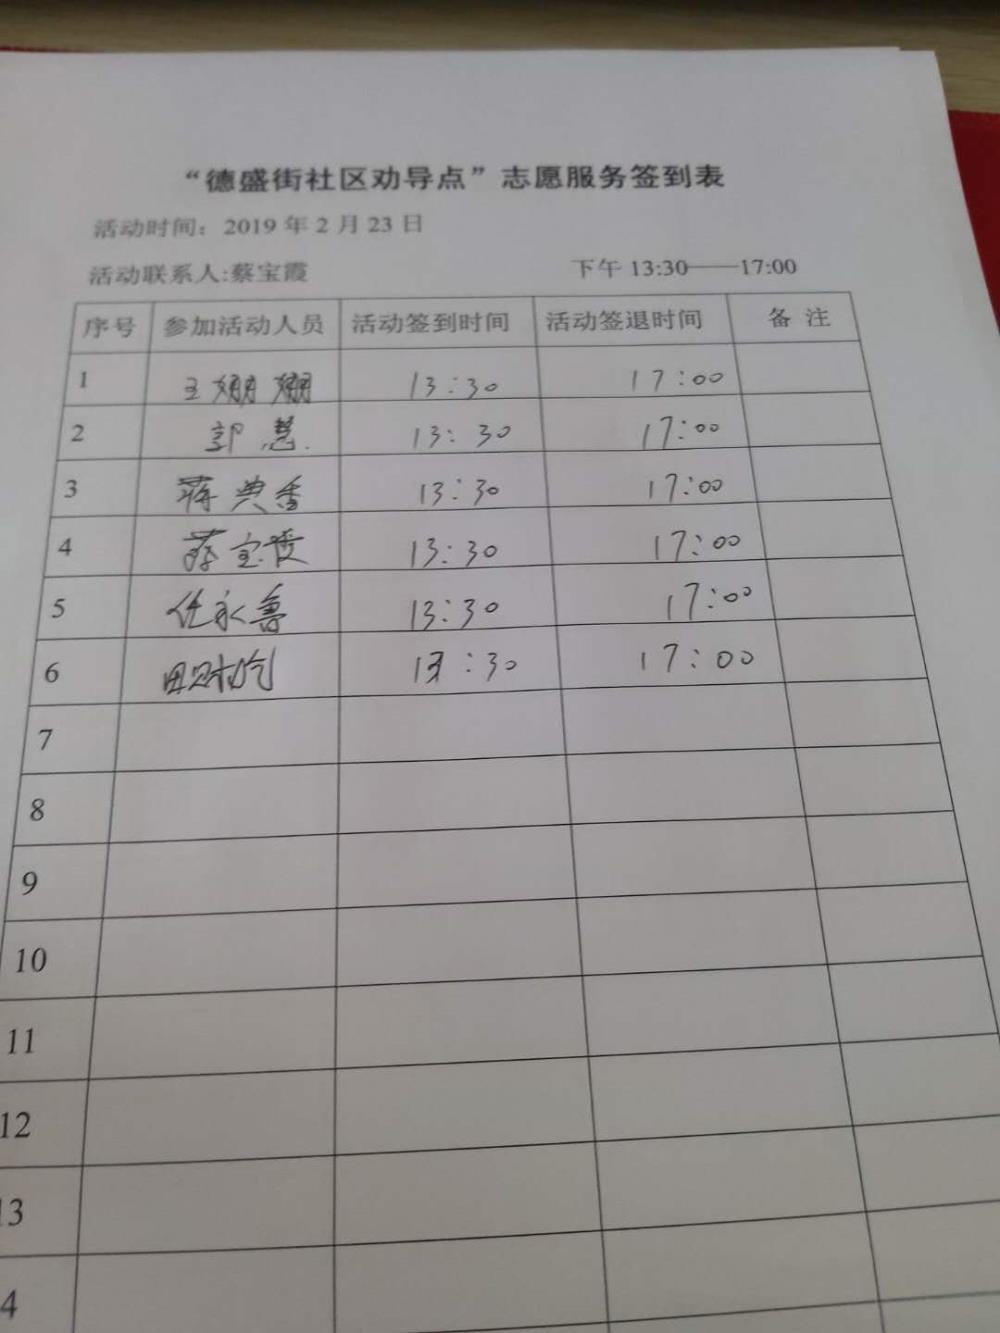 “德盛街社区劝导点”志愿服务签到表
活动时间：2019 年 2 月 23 日
活动联系人:蔡宝霞 下午 13:30——17:00
序号 参加活动人员 活动签到时间 活动签退时间 备 注
1 王姗姗 13:30 17:00
2 郭慧 13:30 17:00
3 蒋典香 13:30 17:00
4 蔡宝霞 13:30 17:00
5 任永鲁 13:30 17:00
6 13:30 17:00
7
8
9
10
11
12
13
4